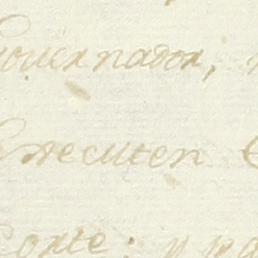 Governador,
Executen
Corte; y pa